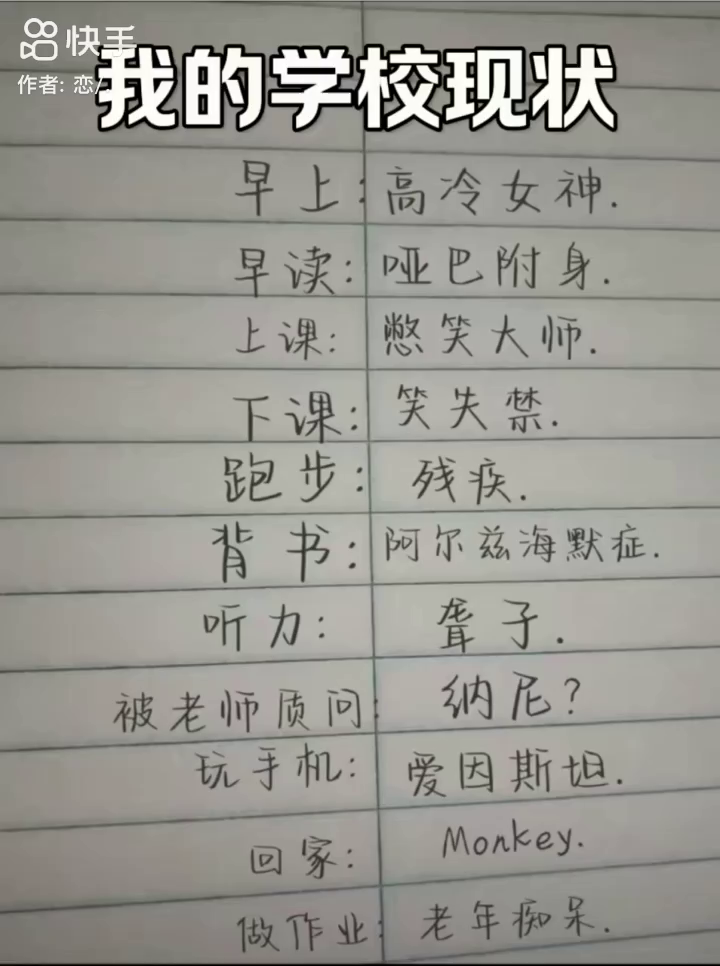 快手
作者: 恋
我的学校现状
早上: 高冷女神.
早读: 哑巴附身.
上课: 憋笑大师.
下课: 笑失禁.
跑步: 残疾.
背书: 阿尔兹海默症.
听力: 聋子.
被老师质问: 纳尼?
玩手机: 爱因斯坦.
回家: Monkey.
做作业: 老年痴呆.